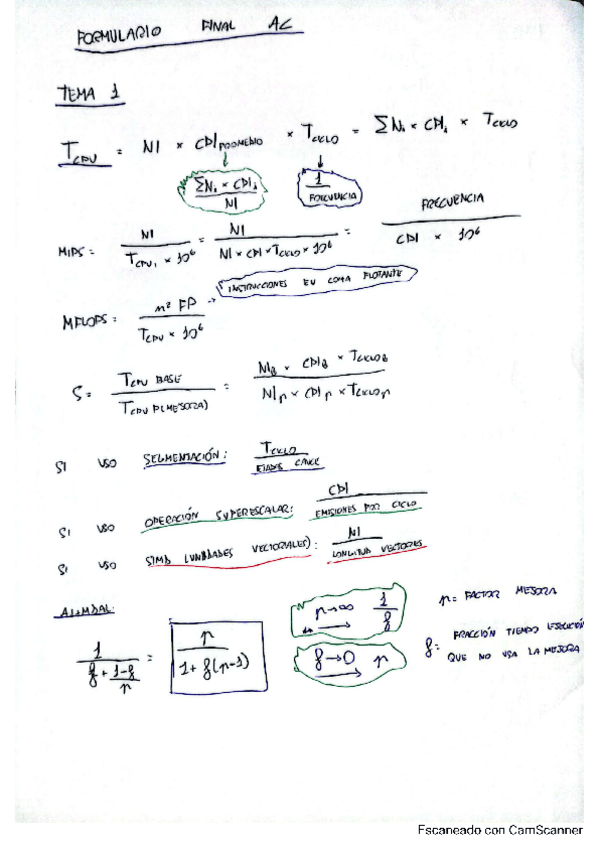 FORMULARIO FINAL AC
TEMA 1
T_CPU = NI × CPI_PROMEDIO × T_CICLO = ΣN_i × CPI_i × T_CICLO
ΣN_i × CPI_i / NI
1 / FRECUENCIA
MIPS = NI / (T_CPU × 10^6) = NI / (NI × CPI × T_CICLO × 10^6) = FRECUENCIA / (CPI × 10^6)
MFLOPS = nº FP / (T_CPU × 10^6) → INSTRUCCIONES EN COMA FLOTANTE
S = T_CPU BASE / T_CPU P(MEJORA) = (NI_B × CPI_B × T_CICLO B) / (NI_P × CPI_P × T_CICLO P)
SI USO SEGMENTACIÓN: T_CICLO / ETAPAS CAUCE
SI USO OPERACIÓN SUPERESCALAR: CPI / EMISIONES POR CICLO
SI USO SIMD (UNIDADES VECTORIALES): NI / LONGITUD VECTORES
AHMDAL:
1 / (f + (1-f)/p) = p / (1 + f(p-1))
p→∞ 1/f
f→0 p
p= FACTOR MEJORA
f= FRACCIÓN TIEMPO EJECUCIÓN
QUE NO USA LA MEJORA
Escaneado con CamScanner